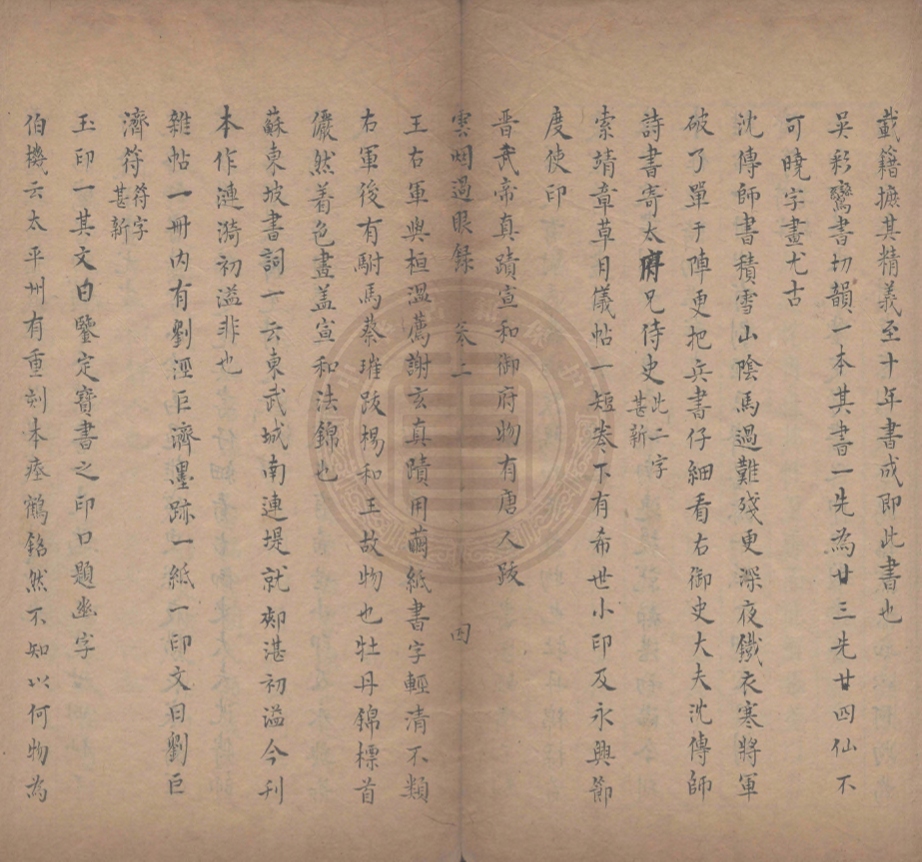 載籍摭其精義至十年書成即此書也
吳彩鸞書切韻一本其書一先為廿三先廿四仙不
可曉字畫尤古
沈傳師書積雪山陰馬過難殘更深夜鐵衣寒將軍
破了單于陣更把兵書仔細看右御史大夫沈傳師
詩書寄太府兄侍史此二字甚新
索靖章草月儀帖一短卷下有希世小印及永興節
度使印
晋武帝真蹟宣和御府物有唐人跋
雲烟過眼錄 卷二 四
王右軍與桓溫薦謝玄真蹟用繭紙書字輕清不類
右軍後有駙馬蔡㻮跋楊和王故物也牡丹錦標首
儼然着色畫盖宣和法錦也
蘇東坡書詞一云東武城南連堤就郟湛初溢今刋
本作漣漪初溢非也
雜帖一冊内有劉涇巨濟墨跡一紙一印文曰劉巨
濟符符字甚新
玉印一其文白鑒定寶書之印口題幽字
伯機云太平州有重刻本瘞鶴銘然不知以何物為